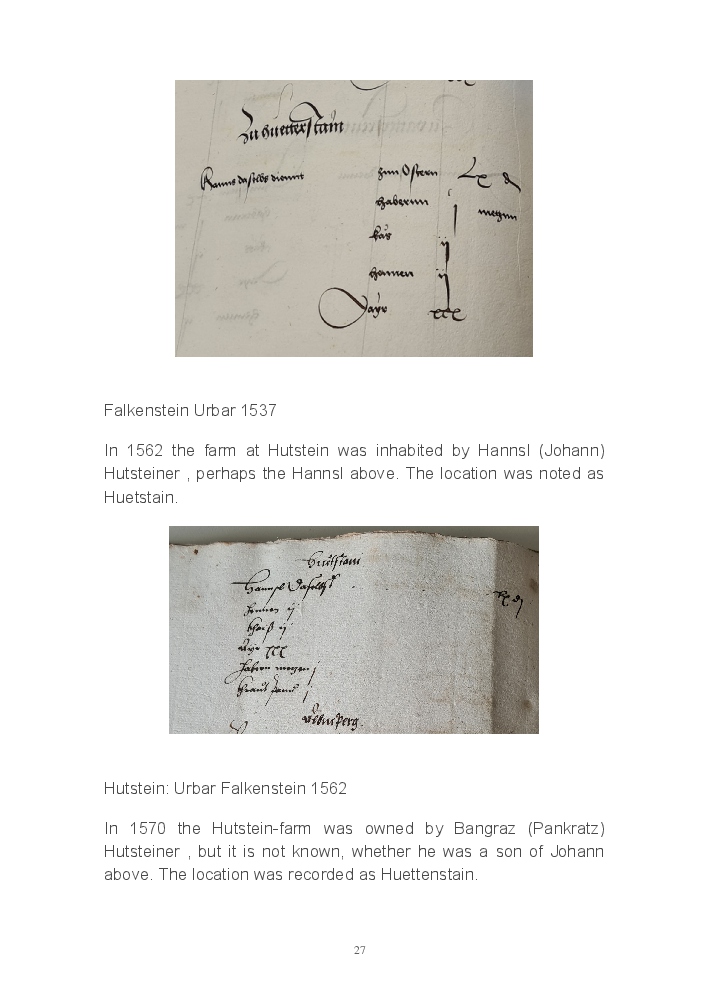 Zu Huetterstain
Hanns daselbs diennt zun Ostern Lx d
habernn j metzнn
kās ij
hennen ij
Ayr xxx
Falkenstein Urbar 1537
In 1562 the farm at Hutstein was inhabited by Hannsl (Johann)
Hutsteiner , perhaps the Hannsl above. The location was noted as
Huetstain.
Hannsl daselbs lx d
hennen ij
khäß ij
Ayr xxx
habern metzen j
Hutstein: Urbar Falkenstein 1562
In 1570 the Hutstein-farm was owned by Bangraz (Pankratz)
Hutsteiner , but it is not known, whether he was a son of Johann
above. The location was recorded as Huettenstain.
27